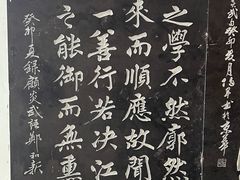 之學不然廓然
來而順應故聞
一善行若決江
之能御而無熏
癸卯夏錄顧炎武語鄭和新